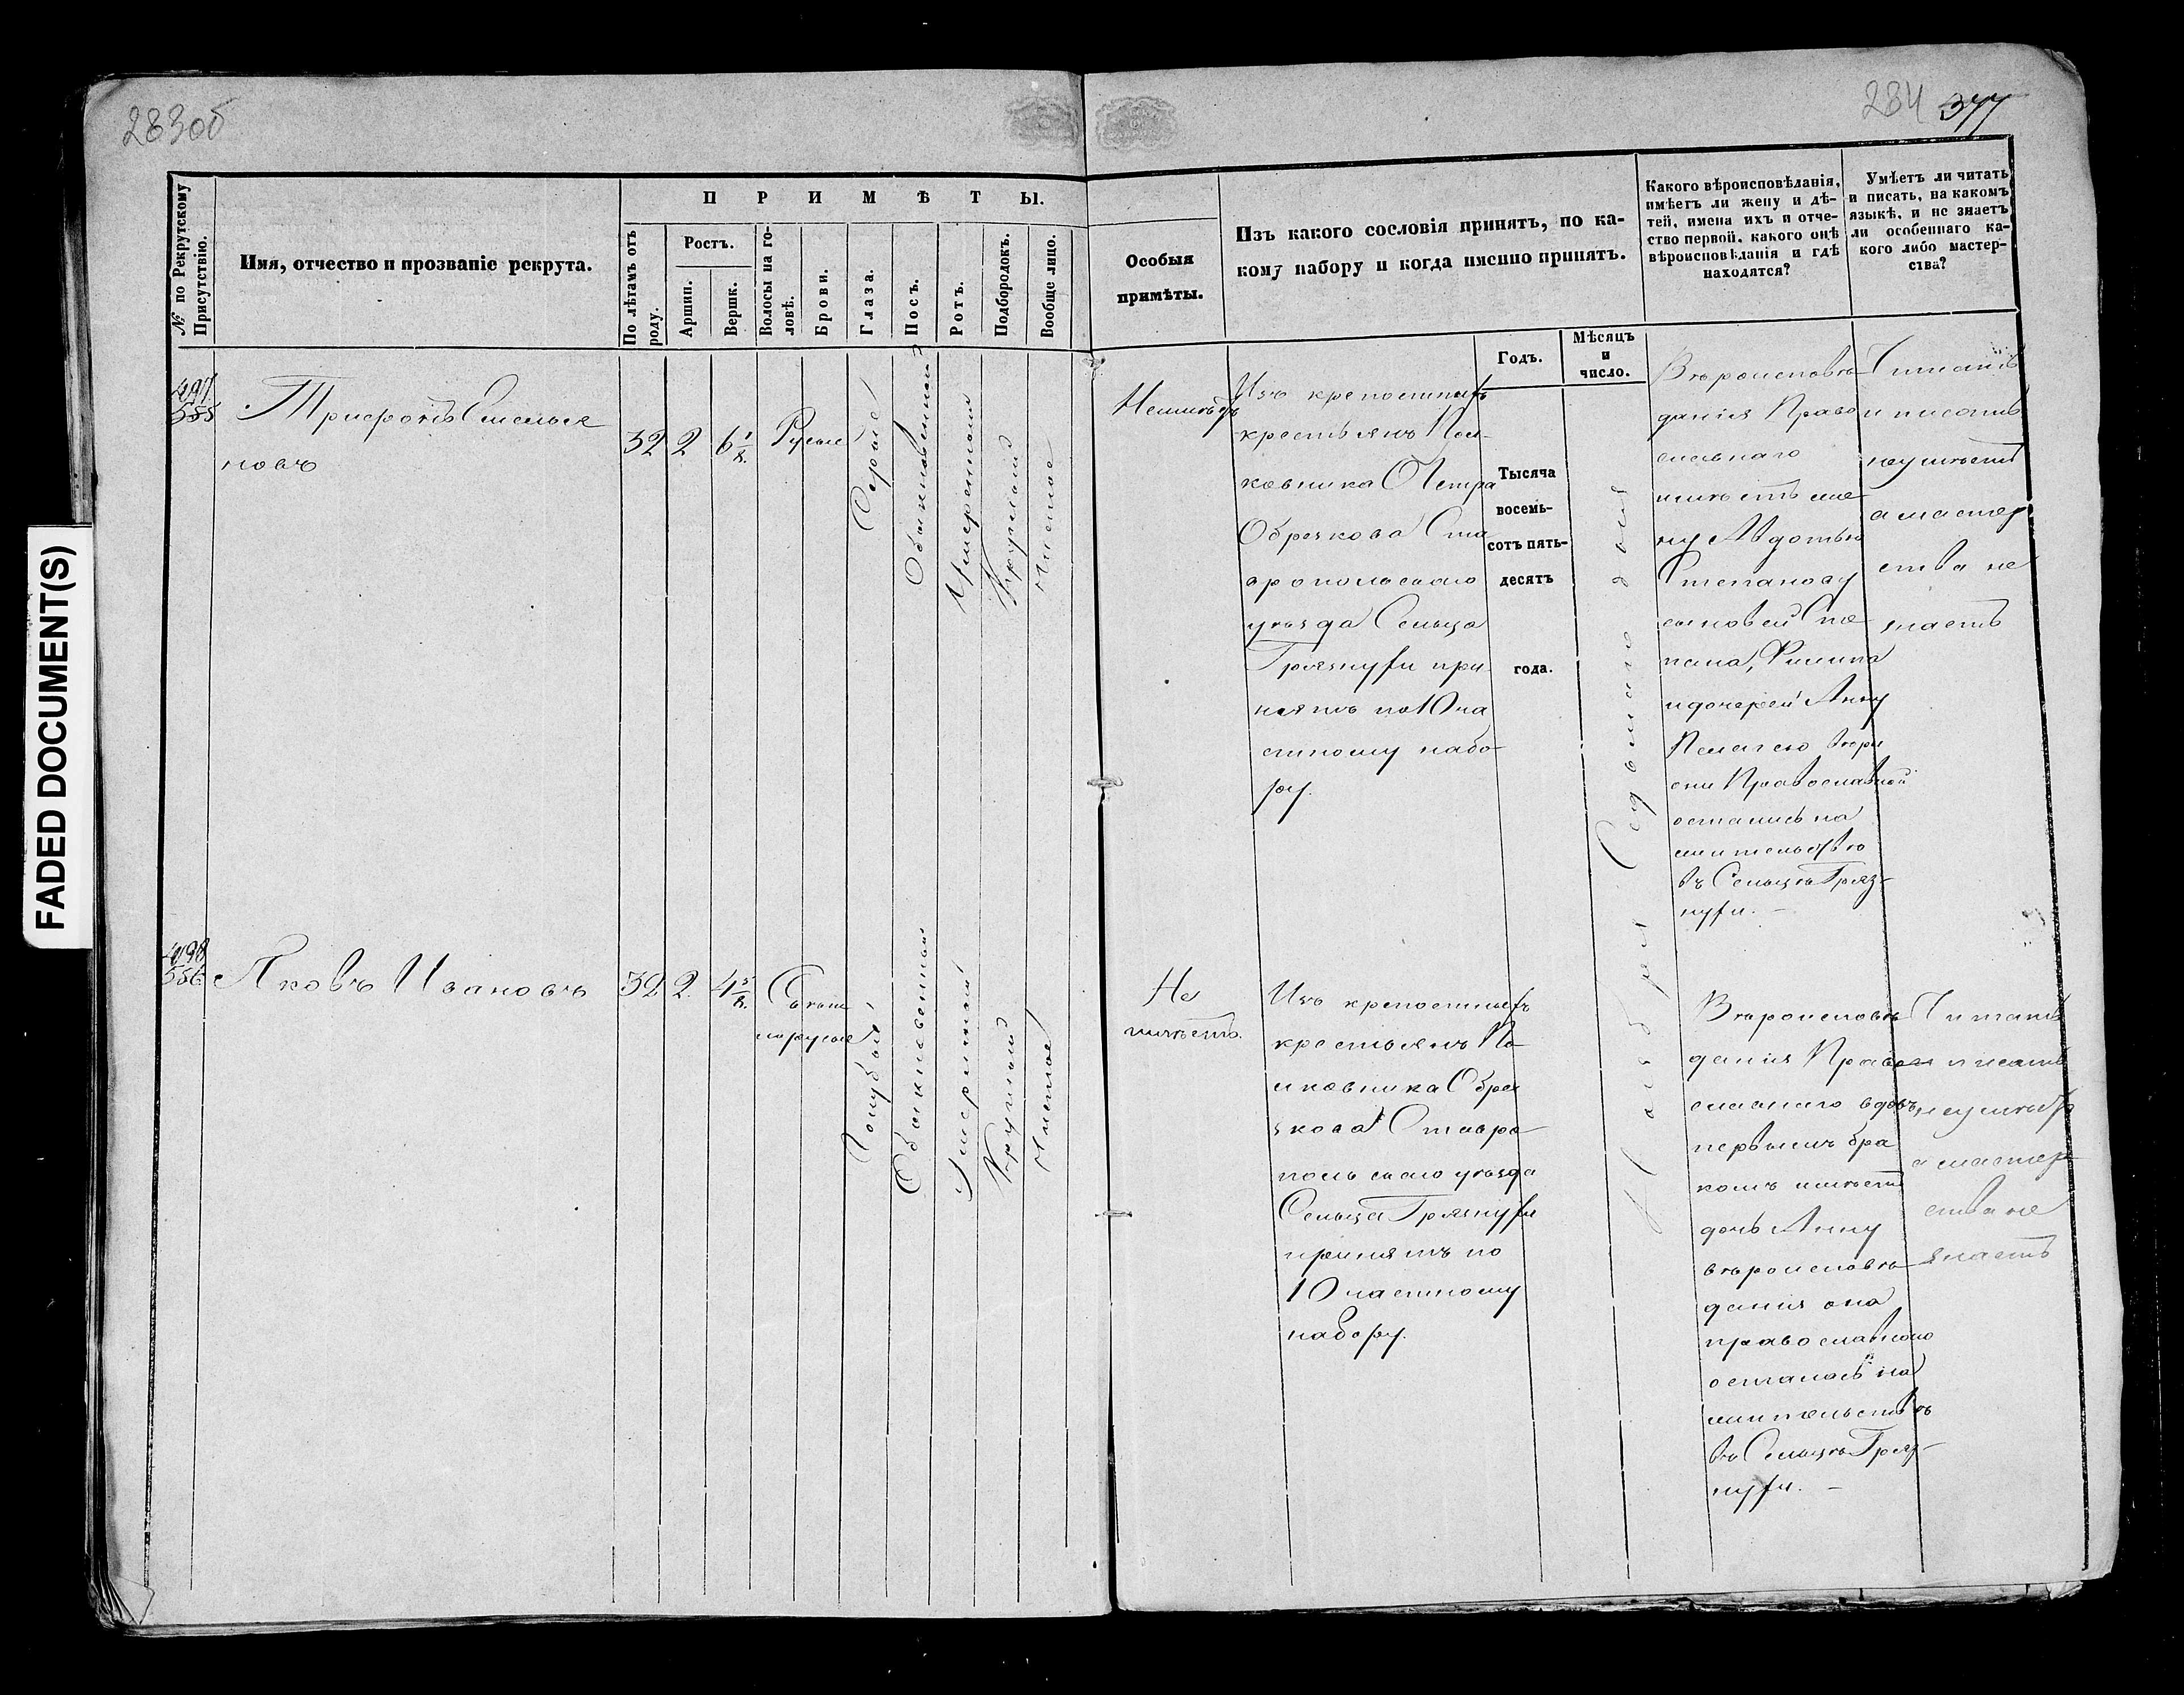 283об
284 377
FADED DOCUMENT(S)
№ по Рекрутскому
Присутствію.
Имя, отчество и прозваніе рекрута.
ПРИМѢТЫ.
По лѣтамъ отъ
роду.
Ростъ.
Аршин.
Вершк.
Волосы на го-
ловѣ.
Брови.
Глаза.
Носъ.
Ротъ.
Подбородокъ.
Вообще лицо.
Особыя
примѣты.
Изъ какого сословія принятъ, по ка-
кому набору и когда именно принятъ.
Годъ.
Мѣсяцъ
и
число.
Какого вѣроисповѣданія,
имѣетъ ли жену и дѣ-
тей, имена ихъ и отче-
ство первой, какого онѣ
вѣроисповѣданія и гдѣ
находятся?
Умѣетъ ли читать
и писать, на какомъ
языкѣ, и не знаетъ
ли особеннаго ка-
кого либо мастер-
ства?
497
585
Трифонъ Емелья
новъ
32 2 6 1/8.
Русые
Серые
Обыкновенной
Умеренный
Круглый
Чистое
Неимѣетъ
Изъ крепостныхъ
крестьянъ Пол-
ковника Петра
Обрезкова Ста
вропольскаго
уѣзда Сельца
Грязнухи при
нятъ по 10 ча
стному набо-
ру.
Тысяча
восемь-
сотъ пять-
десятъ
года.
Ноября Седьмаго дня
Вѣроисповѣ
данія Право
славнаго
имѣетъ же-
ну Авдотью
Степанову
сыновей Сте
пана, Филипа
и дочерей Анну
Пелагею вѣро
остались на
жительствѣ
въ Сельцѣ Гряз-
нухи. –
Читать
и писать
неумѣетъ
а мастер
ства не
знаетъ
498
586
Яковъ Ивановъ
32 2. 4 5/8.
Свѣтло
русые
Голубые
Обыкновенный
Умеренный
Круглый
Чистое
Не
имѣетъ.
Изъ крепостныхъ
крестьянъ По
лковника Обре
зкова Ставро
польскаго уѣзда
Сельца Грязнухи
принятъ по
10 частному
набору.
Вѣроисповѣ
данія Право
славнаго вдовъ
первымъ бра
комъ имѣетъ
дочь Анну
вѣроисповѣ
данія она
православнаго
осталась на
жительствѣ
въ Сельцѣ Гряз-
нухи. –
Читать
и писать
неумѣетъ
а мастер
ства не
знаетъ